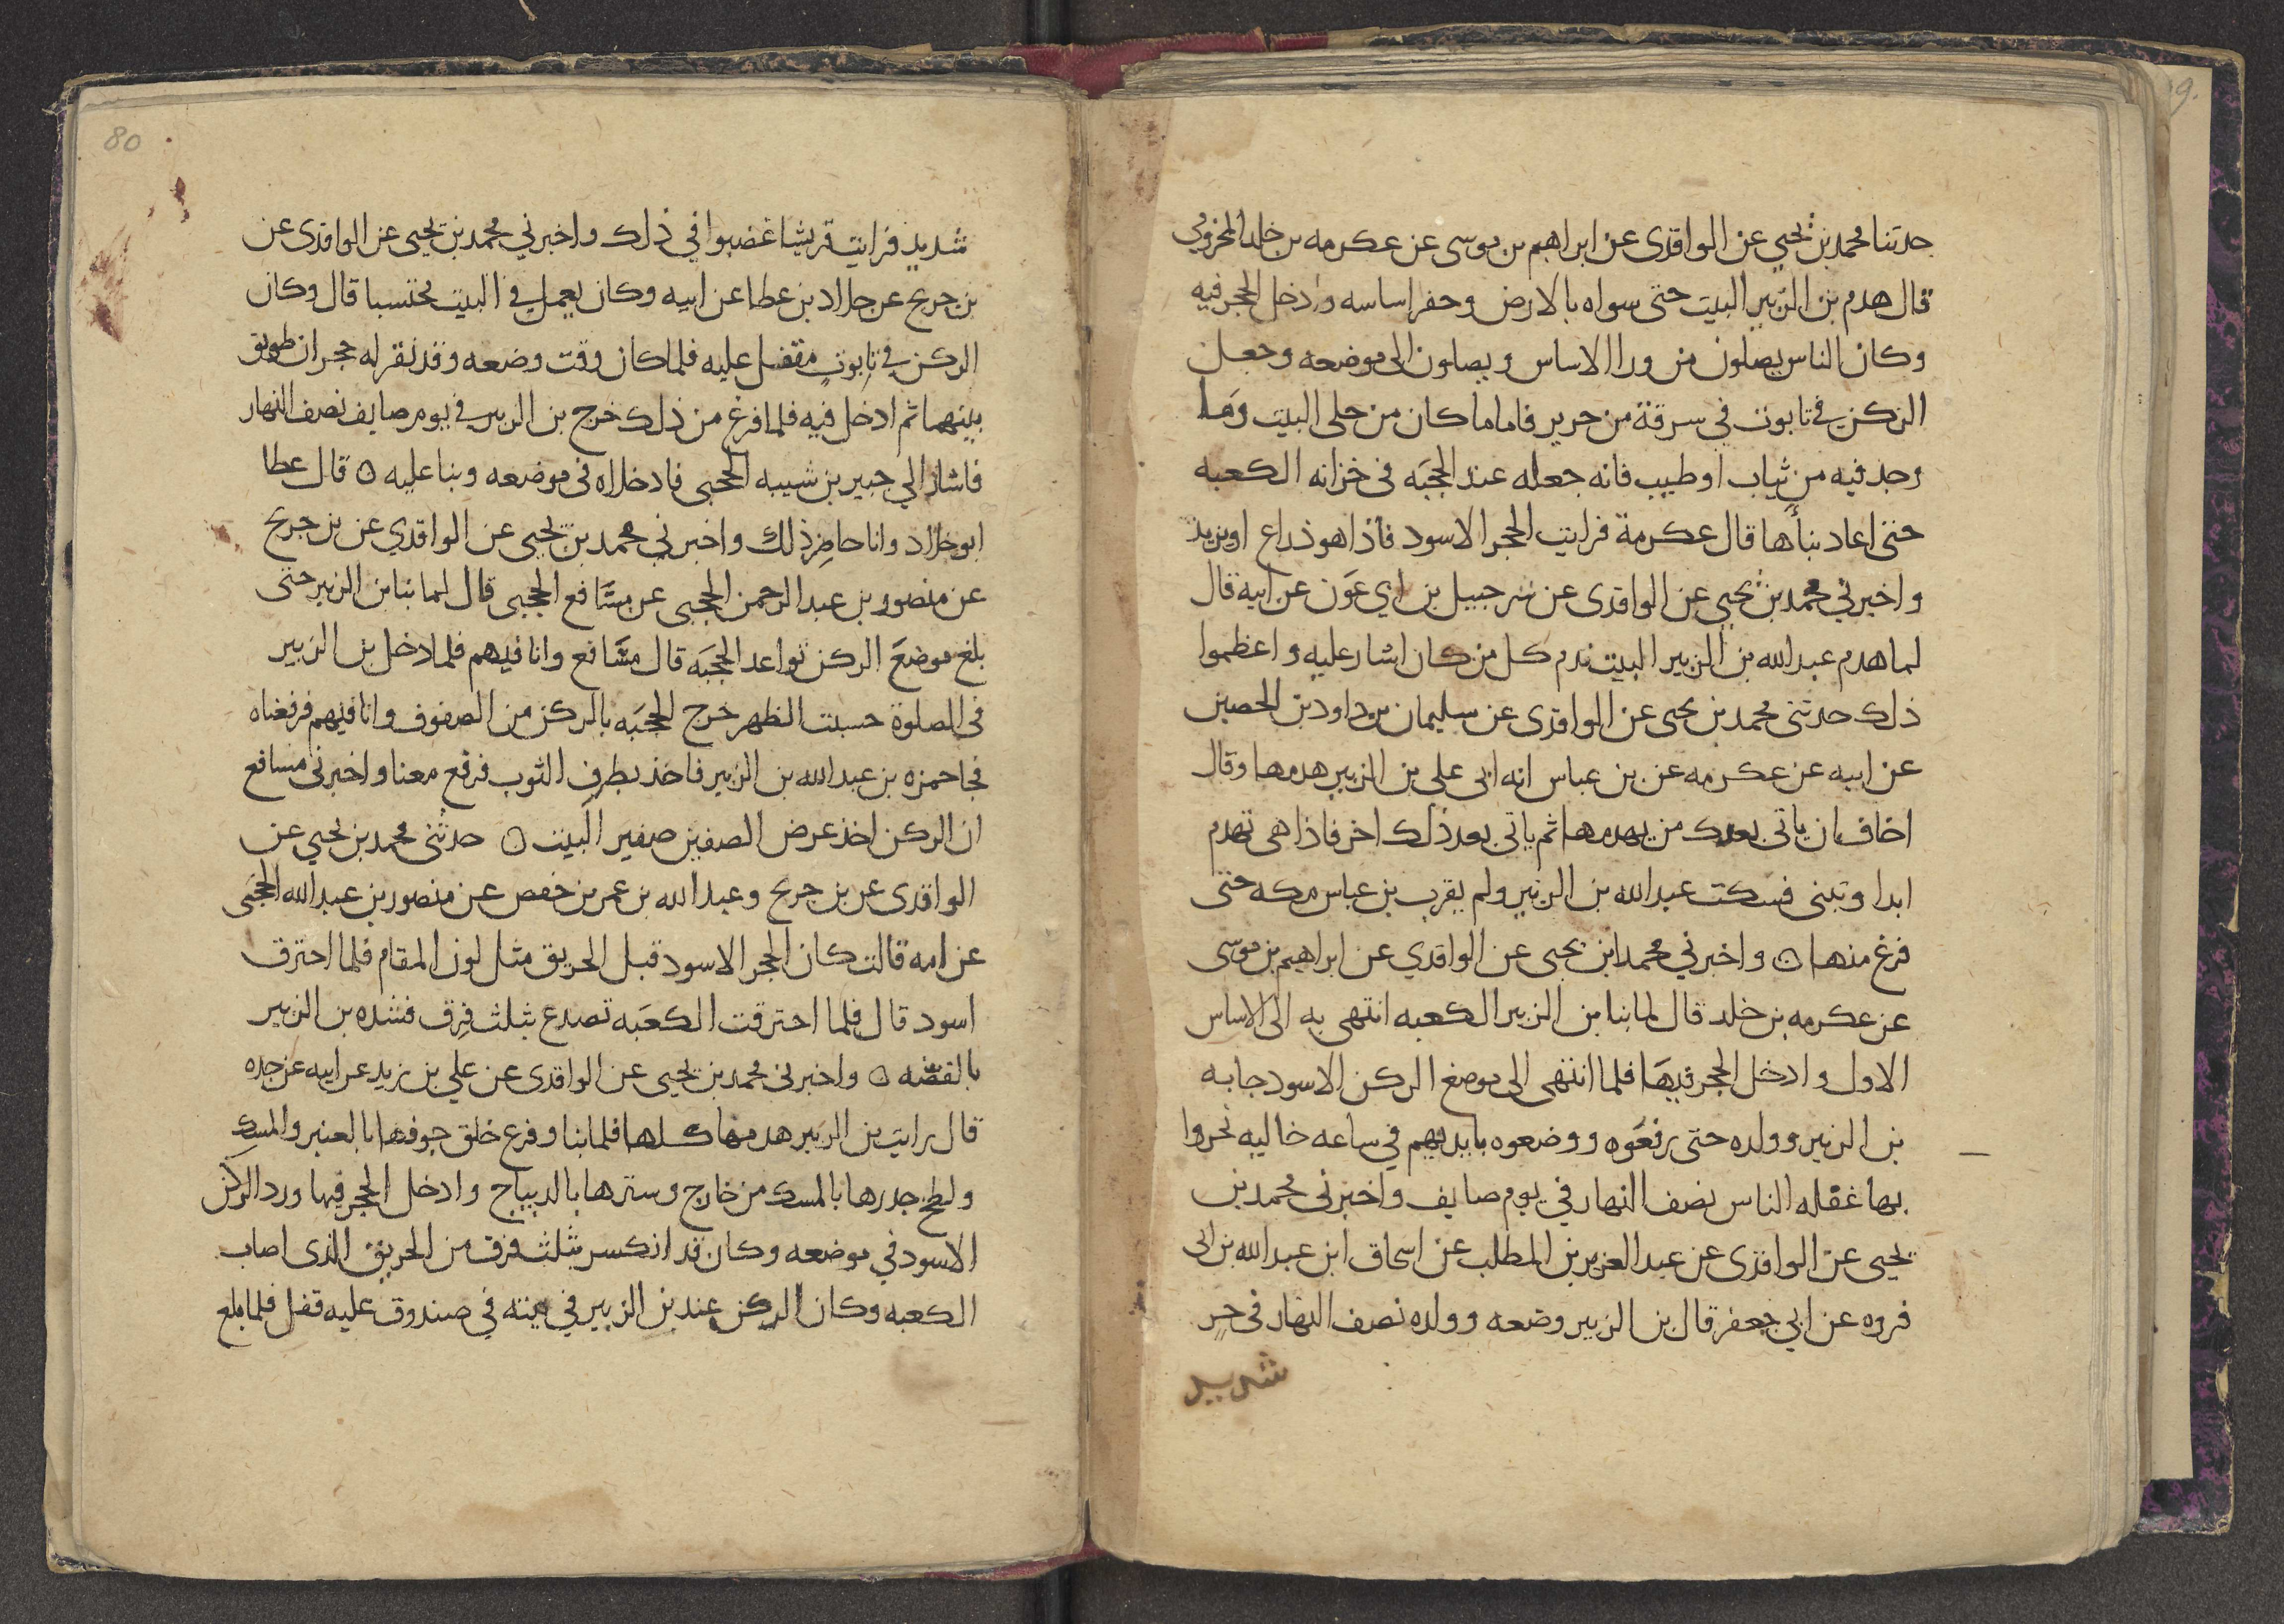 حدثنا محمد بن يحيى عن الواقدى عن ابراهيم بن موسى عن عكرمه بن خلد المخزومي
قال هدم بن الزبير البيت حتى سواه بالارض وحفر اساسه وادخل الحجر فيه
وكان الناس يصلون من ورا الاساس ويصلون الى موضعه وجعل
الركن في تابوت في سرقة من حرير فاما ما كان من حلى البيت وما
وجد فيه من ثياب او طيب فانه جعله عند الحجبه فى خزانه الكعبه
حتى اعاد بناها قال عكرمة فرايت الحجر الاسود فاذا هو ذراع او يزيد
واخبرني محمد بن يحيى عن الواقدى عن شرجبيل بن ابي عون عن ابيه قال
لما هدم عبد الله بن الزبير البيت ندم كل من كان اشار عليه واعظموا
ذلك حدثنى محمد بن يحيى عن الواقدى عن سليمان بن داود بن الحصين
عن ابيه عن عكرمه عن بن عباس انه ابى على بن الزبير هدمها وقال
اخاف ان ياتى بعدك من يهدمها ثم ياتى بعد ذلك اخر فاذا هى تهدم
ابدا وتبنى فسكت عبد الله بن الزبير ولم يقرب بن عباس مكه حتى
فرغ منها ۝ واخبرني محمد ابن يحيى عن الواقدي عن ابراهيم بن موسى
عن عكرمه بن خلد قال لما بنا بن الزبير الكعبه انتهى به الى الاساس
الاول وادخل الحجر فيها فلما انتهى الى موضع الركن الاسود جا به
بن الزبير وولده حتى رفعوه ووضعوه بايديهم في ساعه خاليه تحروا
بها غفله الناس نصف النهار في يوم صايف واخبرنى محمد بن
يحيى عن الواقدى عن عبد العزيز بن المطلب عن اسحاق ابن عبد الله بن ابى
فروه عن ابي جعفر قال بن الزبير وضعه وولده نصف النهار فى حر
شديد
80
شديد فرايت قريشا غضبوا في ذلك واخبرني محمد بن يحيى عن الواقدى عن
بن جريح عن خلاد بن عطا عن ابيه وكان يعمل في البيت محتسبا قال وكان
الركن في تابوت مقفل عليه فلما كان وقت وضعه وقد نقر له حجران طوبق
بينهما ثم ادخل فيه فلما فرغ من ذلك خرج بن الزبير في يوم صايف نصف النهار
فاشار الي جبير بن شيبه الحجبى فادخلاه فى موضعه وبنا عليه ۝ قال عطا
ابو خلاد وانا حاضر ذلك واخبرني محمد بن يحيى عن الواقدي عن بن جريح
عن منصور بن عبد الرحمن الحجبى عن مسافع الحجبى قال لما بنا بن الزبير حتى
بلغ موضع الركن تواعد الحجبه قال مسافع وانا فيهم فلما دخل بن الزبير
فى الصلوة حسبت الظهر خرج الحجبه بالركن من الصفوف وانا فيهم فرفعناه
فجا حمزه بن عبد الله بن الزبير فاخذ بطرف الثوب فرفع معنا واخبرنى مسافع
ان الركن اخذ عرض الصفين صفير البيت ۝ حدثنى محمد بن يحيي عن
الواقدى عن بن جريح وعبد الله بن عمر بن حفص عن منصور بن عبد الله الحجبى
عن امه قالت كان الحجر الاسود قبل الحريق مثل لون المقام فلما احترق
اسود قال فلما احترقت الكعبه تصدع بثلث فرق فشده بن الزبير
بالفضه ۝ واخبرنى محمد بن يحيى عن الواقدى عن علي بن زيد عن ابيه عن جده
قال رايت بن الزبير هدمها كلها فلما بنا وفرغ خلق جوفها بالعنبر والمسك
ولطخ جدرها بالمسك من خارج وسترها بالديباج وادخل الحجر فيها ورد الركن
الاسود في موضعه وكان قد انكسر بثلث فرق من الحريق الذى اصاب
الكعبه وكان الركن عند بن الزبير في بيته في صندوق عليه قفل فلما بلغ